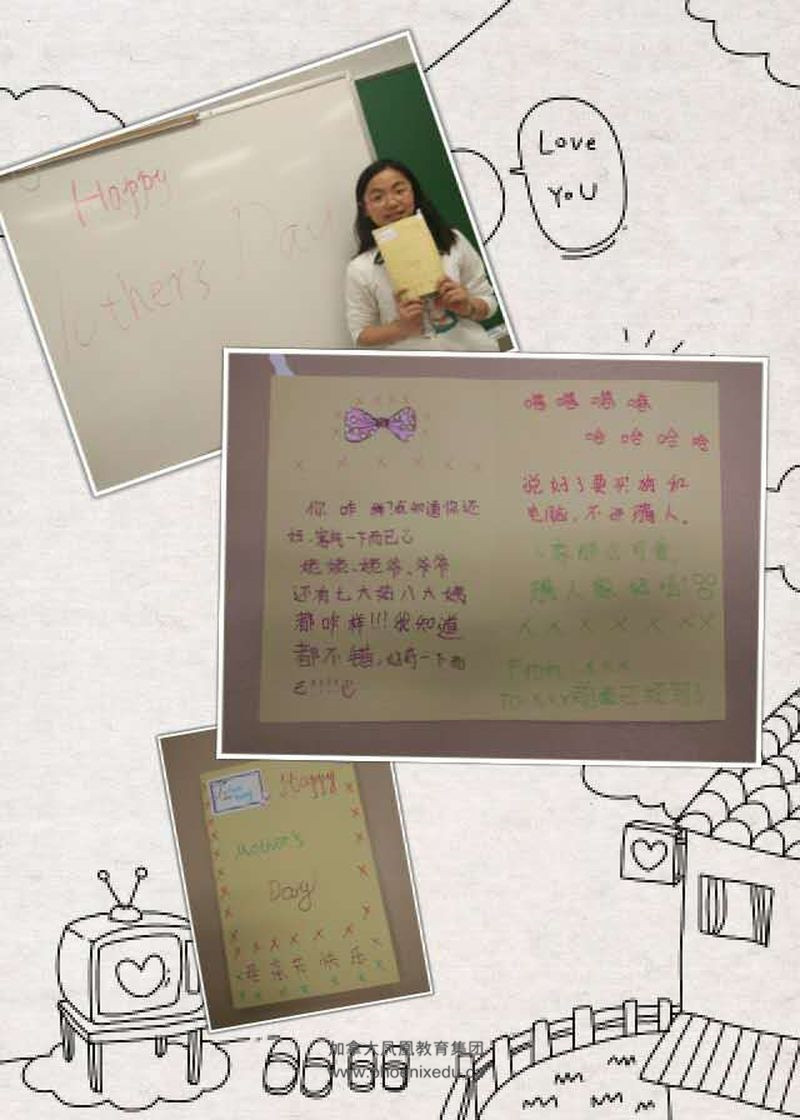 Happy
Day
Love
YOU
嘻 嘻 嘻 嘻
哈 哈 哈 哈
说好了要买狗和
电脑,不许骗人。
你咋样?我知道你还
好,客气一下而已
姥姥、姥爷、爷爷
还有七大姑八大姨
都咋样!!!我知道
都不错,好奇一下而
已!!!!
x x x x x x x
From: x x x
Happy
Mother's
Day!
母亲节快乐
加拿大凤凰教育集团
www.phoenixedu.ca